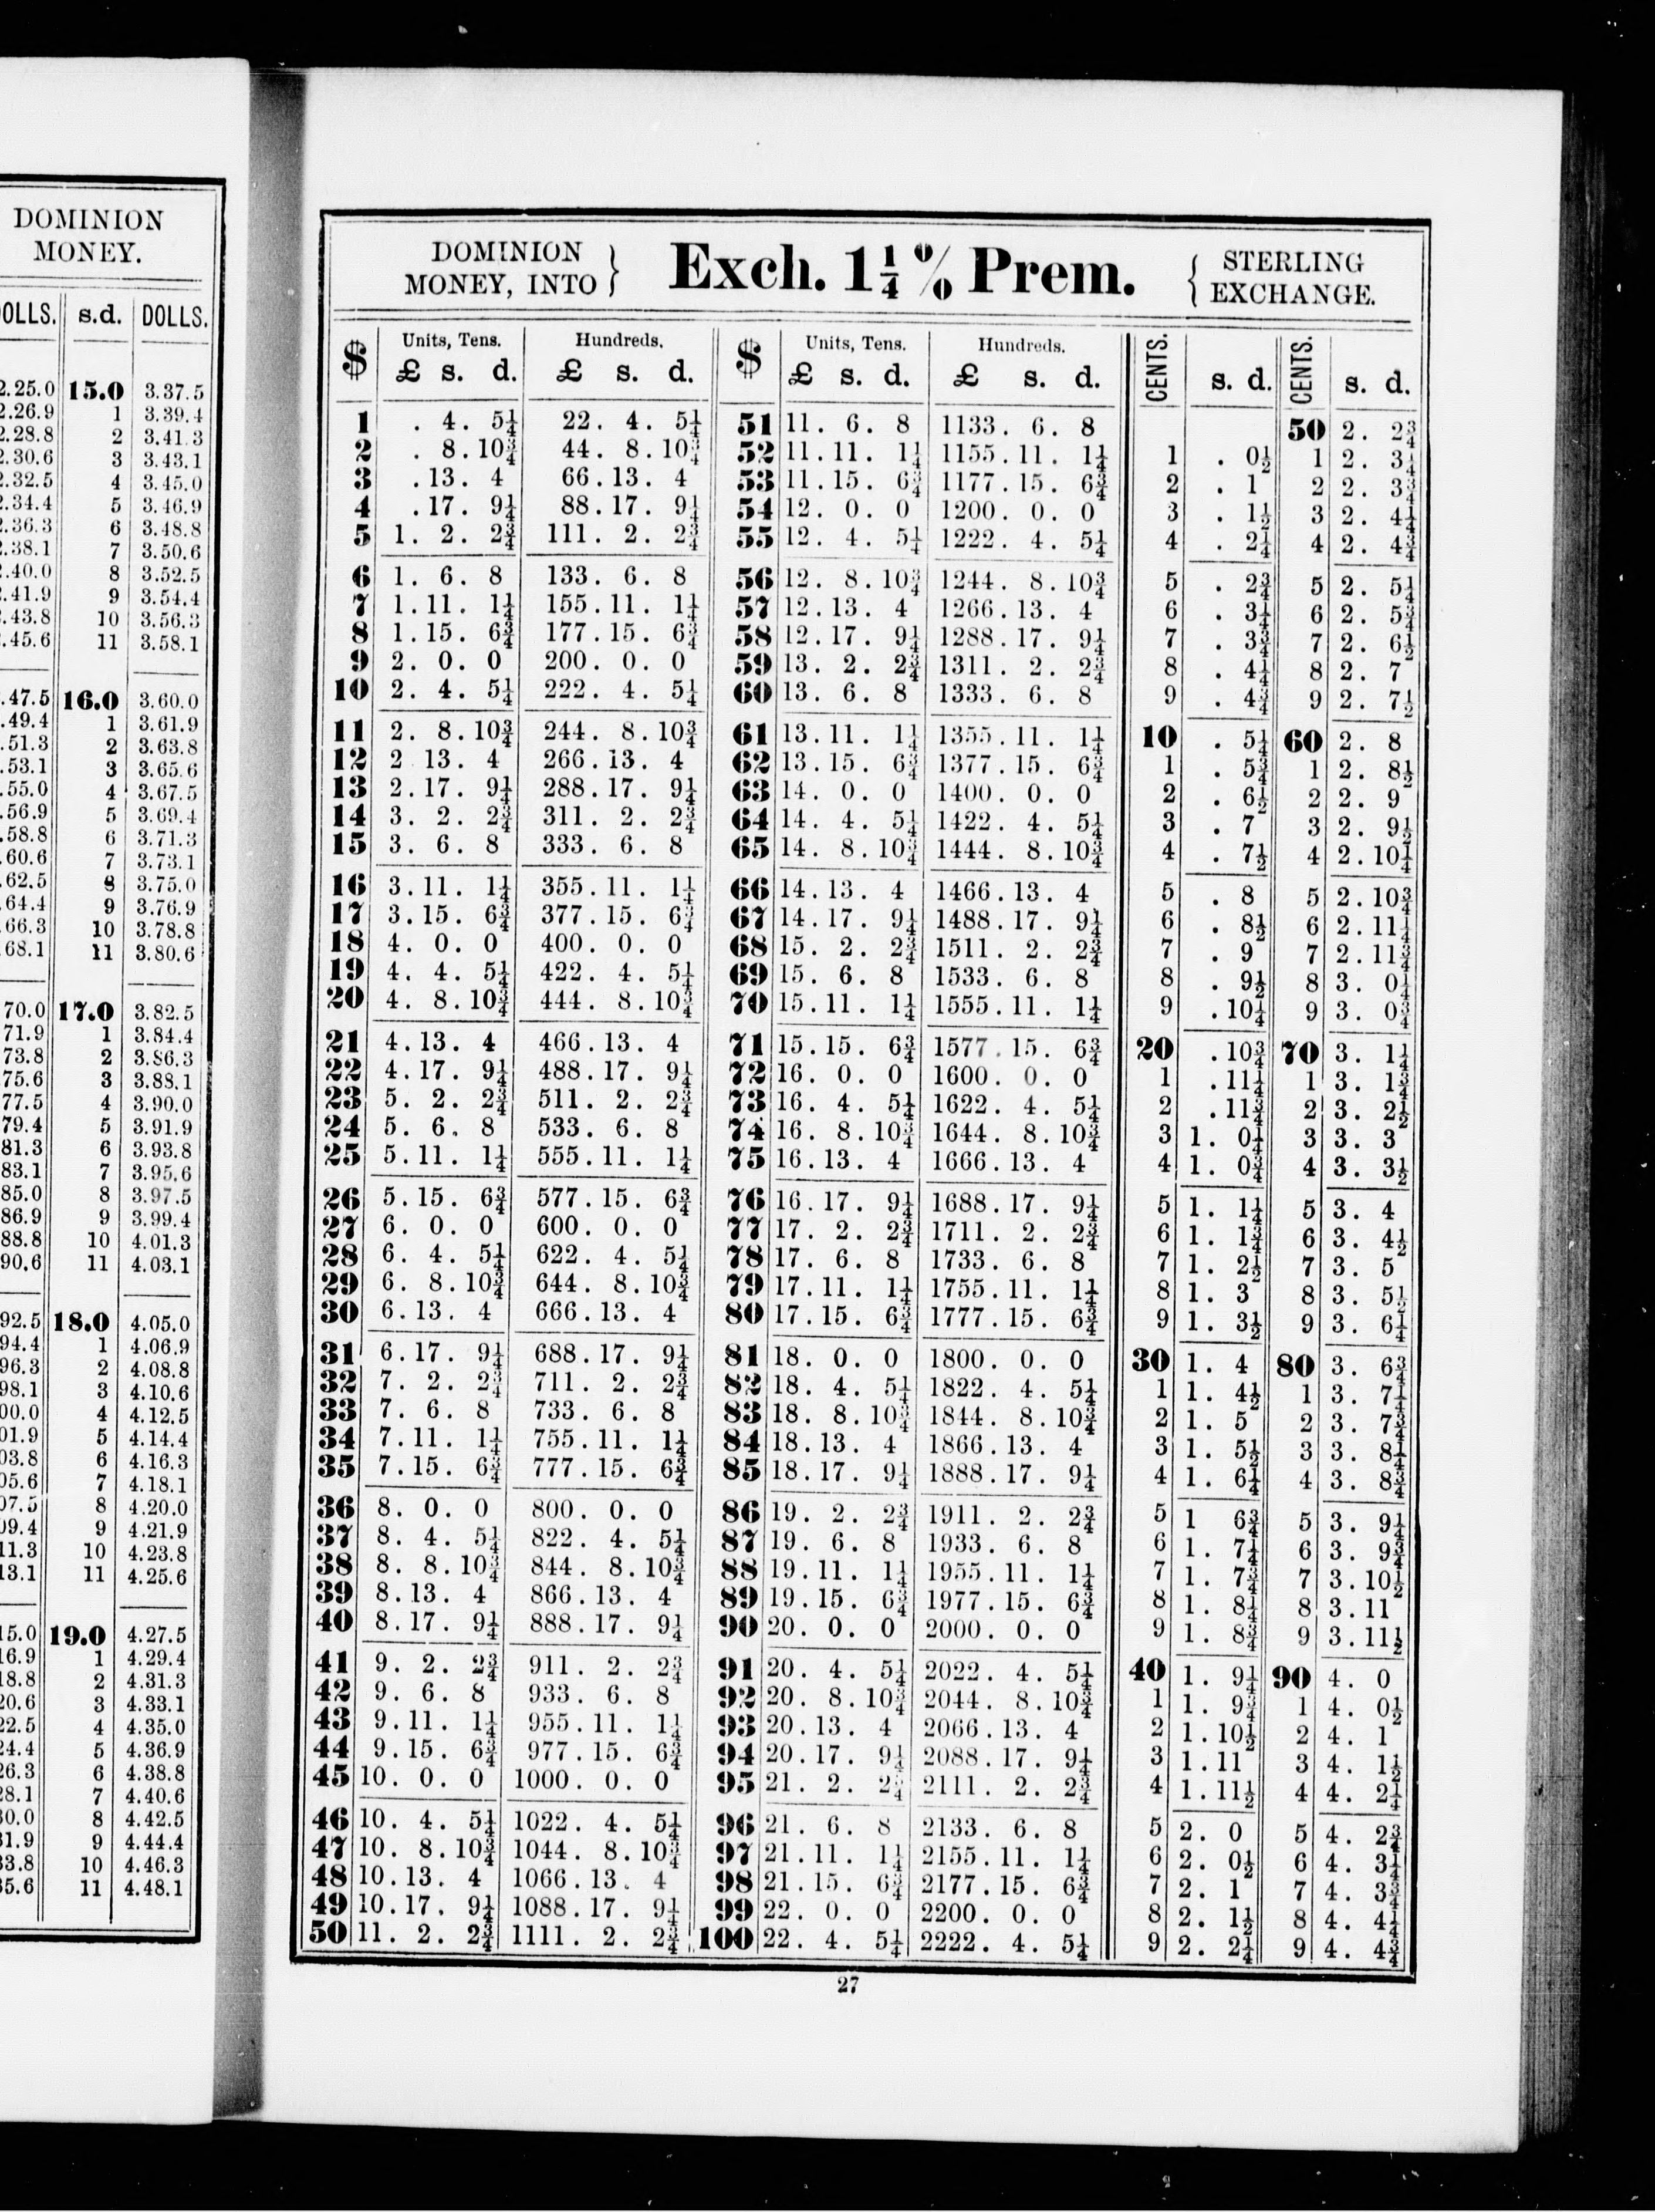 DOMINION
MONEY.
DOLLS. s.d. DOLLS.
2.25.0 15.0 3.37.5
2.26.9 1 3.39.4
2.28.8 2 3.41.3
2.30.6 3 3.43.1
2.32.5 4 3.45.0
2.34.4 5 3.46.9
2.36.3 6 3.48.8
2.38.1 7 3.50.6
.40.0 8 3.52.5
.41.9 9 3.54.4
.43.8 10 3.56.3
.45.6 11 3.58.1
.47.5 16.0 3.60.0
.49.4 1 3.61.9
.51.3 2 3.63.8
.53.1 3 3.65.6
.55.0 4 3.67.5
.56.9 5 3.69.4
.58.8 6 3.71.3
.60.6 7 3.73.1
.62.5 8 3.75.0
.64.4 9 3.76.9
66.3 10 3.78.8
68.1 11 3.80.6
70.0 17.0 3.82.5
71.9 1 3.84.4
73.8 2 3.86.3
75.6 3 3.88.1
77.5 4 3.90.0
79.4 5 3.91.9
81.3 6 3.93.8
83.1 7 3.95.6
85.0 8 3.97.5
86.9 9 3.99.4
88.8 10 4.01.3
90.6 11 4.03.1
92.5 18.0 4.05.0
94.4 1 4.06.9
96.3 2 4.08.8
98.1 3 4.10.6
00.0 4 4.12.5
01.9 5 4.14.4
03.8 6 4.16.3
05.6 7 4.18.1
07.5 8 4.20.0
09.4 9 4.21.9
11.3 10 4.23.8
13.1 11 4.25.6
15.0 19.0 4.27.5
16.9 1 4.29.4
18.8 2 4.31.3
20.6 3 4.33.1
22.5 4 4.35.0
24.4 5 4.36.9
26.3 6 4.38.8
28.1 7 4.40.6
30.0 8 4.42.5
31.9 9 4.44.4
33.8 10 4.46.3
35.6 11 4.48.1
DOMINION
MONEY, INTO } Exch. 1¼ % Prem. { STERLING
EXCHANGE.
$ Units, Tens. Hundreds. $ Units, Tens. Hundreds. CENTS. CENTS.
£ s. d. £ s. d. £ s. d. £ s. d. s. d. s. d.
1 . 4. 5¼ 22. 4. 5¼ 51 11. 6. 8 1133. 6. 8 50 2. 2¾
2 . 8.10¾ 44. 8.10¾ 52 11.11. 1¼ 1155.11. 1¼ 1 . 0½ 1 2. 3¼
3 .13. 4 66.13. 4 53 11.15. 6¾ 1177.15. 6¾ 2 . 1 2 2. 3¾
4 .17. 9¼ 88.17. 9¼ 54 12. 0. 0 1200. 0. 0 3 . 1½ 3 2. 4¼
5 1. 2. 2¾ 111. 2. 2¾ 55 12. 4. 5¼ 1222. 4. 5¼ 4 . 2¼ 4 2. 4¾
6 1. 6. 8 133. 6. 8 56 12. 8.10¾ 1244. 8.10¾ 5 . 2¾ 5 2. 5¼
7 1.11. 1¼ 155.11. 1¼ 57 12.13. 4 1266.13. 4 6 . 3¼ 6 2. 5¾
8 1.15. 6¾ 177.15. 6¾ 58 12.17. 9¼ 1288.17. 9¼ 7 . 3¾ 7 2. 6½
9 2. 0. 0 200. 0. 0 59 13. 2. 2¾ 1311. 2. 2¾ 8 . 4¼ 8 2. 7
10 2. 4. 5¼ 222. 4. 5¼ 60 13. 6. 8 1333. 6. 8 9 . 4¾ 9 2. 7½
11 2. 8.10¾ 244. 8.10¾ 61 13.11. 1¼ 1355.11. 1¼ 10 . 5¼ 60 2. 8
12 2 13. 4 266.13. 4 62 13.15. 6¾ 1377.15. 6¾ 1 . 5¾ 1 2. 8½
13 2.17. 9¼ 288.17. 9¼ 63 14. 0. 0 1400. 0. 0 2 . 6½ 2 2. 9
14 3. 2. 2¾ 311. 2. 2¾ 64 14. 4. 5¼ 1422. 4. 5¼ 3 . 7 3 2. 9½
15 3. 6. 8 333. 6. 8 65 14. 8.10¾ 1444. 8.10¾ 4 . 7½ 4 2.10¼
16 3.11. 1¼ 355.11. 1¼ 66 14.13. 4 1466.13. 4 5 . 8 5 2.10¾
17 3.15. 6¾ 377.15. 6¾ 67 14.17. 9¼ 1488.17. 9¼ 6 . 8½ 6 2.11¼
18 4. 0. 0 400. 0. 0 68 15. 2. 2¾ 1511. 2. 2¾ 7 . 9 7 2.11¾
19 4. 4. 5¼ 422. 4. 5¼ 69 15. 6. 8 1533. 6. 8 8 . 9½ 8 3. 0¼
20 4. 8.10¾ 444. 8.10¾ 70 15.11. 1¼ 1555.11. 1¼ 9 .10¼ 9 3. 0¾
21 4.13. 4 466.13. 4 71 15.15. 6¾ 1577.15. 6¾ 20 .10¾ 70 3. 1¼
22 4.17. 9¼ 488.17. 9¼ 72 16. 0. 0 1600. 0. 0 1 .11¼ 1 3. 1¾
23 5. 2. 2¾ 511. 2. 2¾ 73 16. 4. 5¼ 1622. 4. 5¼ 2 .11¾ 2 3. 2½
24 5. 6. 8 533. 6. 8 74 16. 8.10¾ 1644. 8.10¾ 3 1. 0¼ 3 3. 3
25 5.11. 1¼ 555.11. 1¼ 75 16.13. 4 1666.13. 4 4 1. 0¾ 4 3. 3½
26 5.15. 6¾ 577.15. 6¾ 76 16.17. 9¼ 1688.17. 9¼ 5 1. 1¼ 5 3. 4
27 6. 0. 0 600. 0. 0 77 17. 2. 2¾ 1711. 2. 2¾ 6 1. 1¾ 6 3. 4½
28 6. 4. 5¼ 622. 4. 5¼ 78 17. 6. 8 1733. 6. 8 7 1. 2½ 7 3. 5
29 6. 8.10¾ 644. 8.10¾ 79 17.11. 1¼ 1755.11. 1¼ 8 1. 3 8 3. 5½
30 6.13. 4 666.13. 4 80 17.15. 6¾ 1777.15. 6¾ 9 1. 3½ 9 3. 6¼
31 6.17. 9¼ 688.17. 9¼ 81 18. 0. 0 1800. 0. 0 30 1. 4 80 3. 6¾
32 7. 2. 2¾ 711. 2. 2¾ 82 18. 4. 5¼ 1822. 4. 5¼ 1 1. 4½ 1 3. 7¼
33 7. 6. 8 733. 6. 8 83 18. 8.10¾ 1844. 8.10¾ 2 1. 5 2 3. 7¾
34 7.11. 1¼ 755.11. 1¼ 84 18.13. 4 1866.13. 4 3 1. 5½ 3 3. 8¼
35 7.15. 6¾ 777.15. 6¾ 85 18.17. 9¼ 1888.17. 9¼ 4 1. 6¼ 4 3. 8¾
36 8. 0. 0 800. 0. 0 86 19. 2. 2¾ 1911. 2. 2¾ 5 1 6¾ 5 3. 9¼
37 8. 4. 5¼ 822. 4. 5¼ 87 19. 6. 8 1933. 6. 8 6 1. 7¼ 6 3. 9¾
38 8. 8.10¾ 844. 8.10¾ 88 19.11. 1¼ 1955.11. 1¼ 7 1. 7¾ 7 3.10½
39 8.13. 4 866.13. 4 89 19.15. 6¾ 1977.15. 6¾ 8 1. 8¼ 8 3.11
40 8.17. 9¼ 888.17. 9¼ 90 20. 0. 0 2000. 0. 0 9 1. 8¾ 9 3.11½
41 9. 2. 2¾ 911. 2. 2¾ 91 20. 4. 5¼ 2022. 4. 5¼ 40 1. 9¼ 90 4. 0
42 9. 6. 8 933. 6. 8 92 20. 8.10¾ 2044. 8.10¾ 1 1. 9¾ 1 4. 0½
43 9.11. 1¼ 955.11. 1¼ 93 20.13. 4 2066.13. 4 2 1.10½ 2 4. 1
44 9.15. 6¾ 977.15. 6¾ 94 20.17. 9¼ 2088.17. 9¼ 3 1.11 3 4. 1½
45 10. 0. 0 1000. 0. 0 95 21. 2. 2¾ 2111. 2. 2¾ 4 1.11½ 4 4. 2¼
46 10. 4. 5¼ 1022. 4. 5¼ 96 21. 6. 8 2133. 6. 8 5 2. 0 5 4. 2¾
47 10. 8.10¾ 1044. 8.10¾ 97 21.11. 1¼ 2155.11. 1¼ 6 2. 0½ 6 4. 3¼
48 10.13. 4 1066.13. 4 98 21.15. 6¾ 2177.15. 6¾ 7 2. 1 7 4. 3¾
49 10.17. 9¼ 1088.17. 9¼ 99 22. 0. 0 2200. 0. 0 8 2. 1½ 8 4. 4¼
50 11. 2. 2¾ 1111. 2. 2¾ 100 22. 4. 5¼ 2222. 4. 5¼ 9 2. 2¼ 9 4. 4¾
27